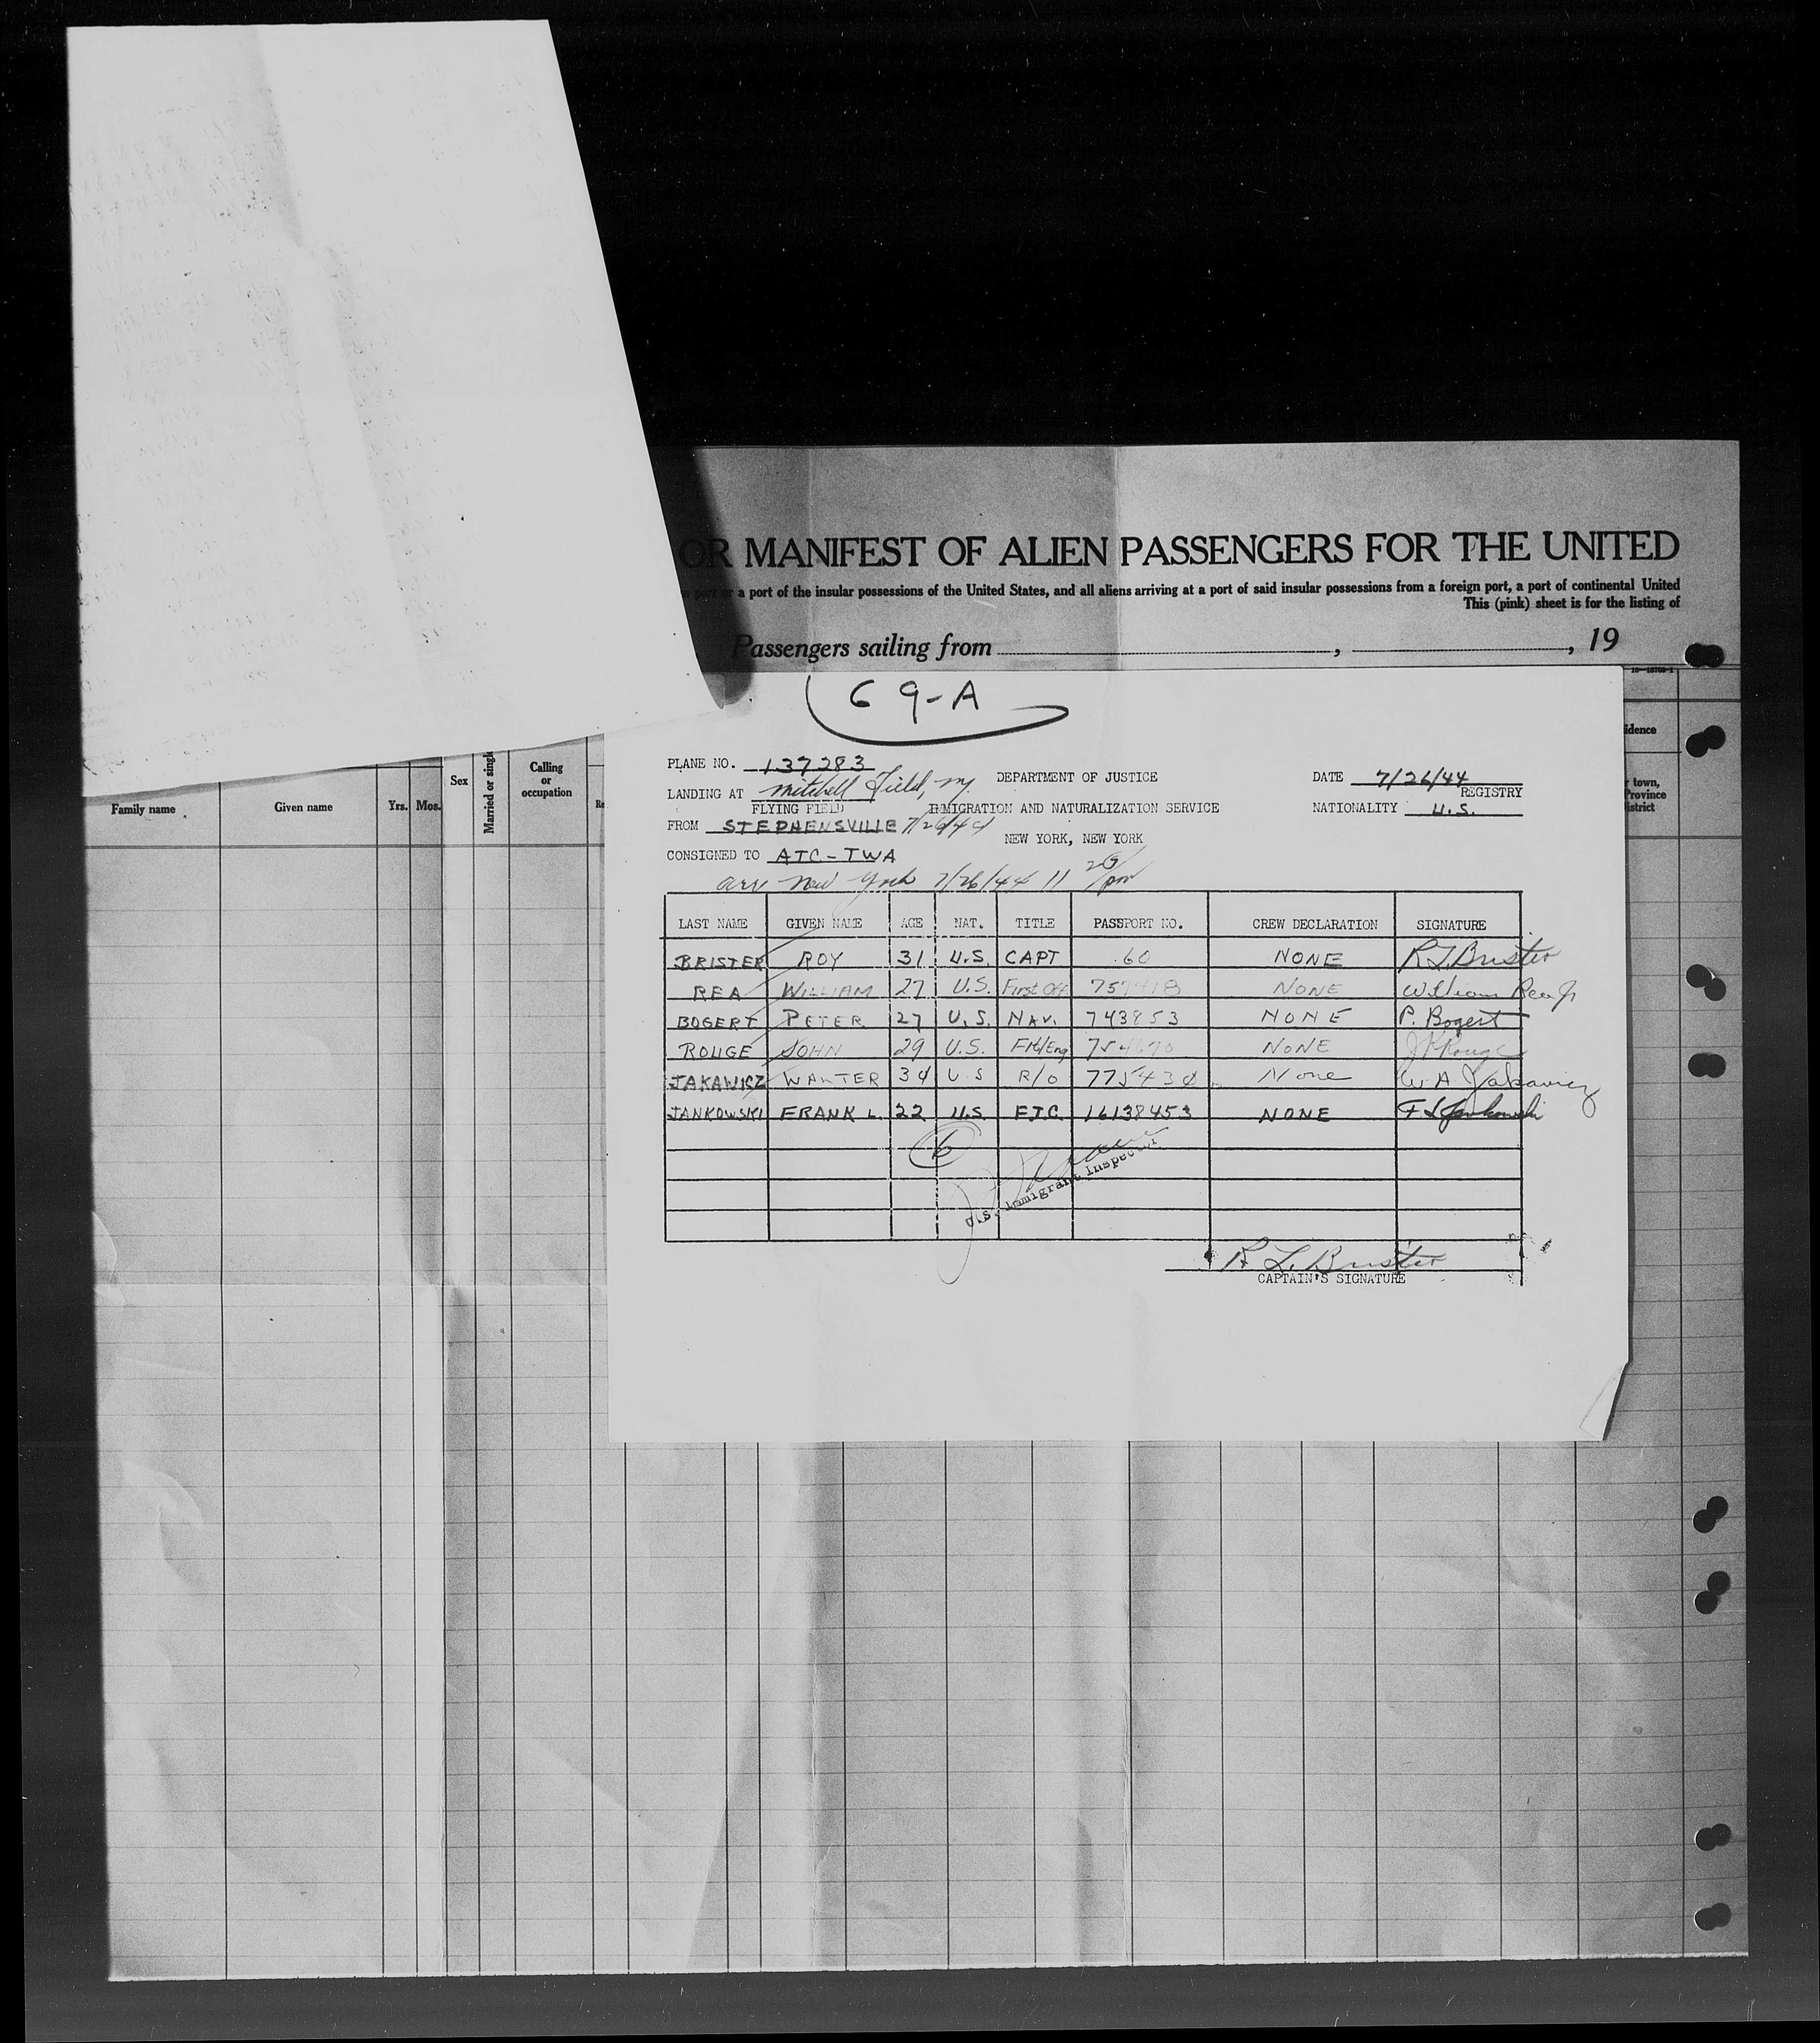 OR MANIFEST OF ALIEN PASSENGERS FOR THE UNITED
a port of the insular possessions of the United States, and all aliens arriving at a port of said insular possessions from a foreign port, a port of continental United
This (pink) sheet is for the listing of
Passengers sailing from , , 19
69-A
PLANE NO. 137283
LANDING AT Mitchell Field, NY DEPARTMENT OF JUSTICE DATE 7/26/44
FLYING FIELD IMMIGRATION AND NATURALIZATION SERVICE REGISTRY NATIONALITY U.S.
FROM STEPHENSVILLE 7/26/44 NEW YORK, NEW YORK
CONSIGNED TO ATC-TWA
arr New York 7/26/44 11 pm
LAST NAME GIVEN NAME AGE NAT. TITLE PASSPORT NO. CREW DECLARATION SIGNATURE
BRISTER ROY 31 U.S. CAPT 60 NONE R L Brister
REA WILLIAM 27 U.S. First Off. NONE William Rea Jr
BOGERT PETER 27 U.S. NAV. 743853 NONE P. Bogert
ROUGE JOHN 29 U.S. Flt/Eng NONE J Rouge
JAKAWICZ WALTER 34 U S R/O 775434 None W. A. Jakawicz
JANKOWSKI FRANK L. 22 U.S. F.T.C. 16138453 NONE F L Jankowski
6
U.S. Immigrant Inspector
R L. Brister
CAPTAIN'S SIGNATURE
Family name Given name Yrs. Mos. Sex Married or single Calling or occupation
idence
town,
Province
istrict